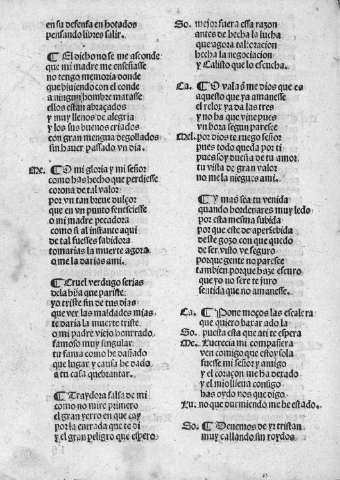 en su defensa en hotados
pensando libres salir.
¶ El dicho no se me asconde
que mi madre me enseñasse
no tengo memoria donde
que huiendo con el conde
a ningun hombre matasse
ellos estan abraçados
y muy llenos de alegria
y los sus buenos criados
con gran mengua degollados
sin hauer passado vn dia.
Me. ¶ O mi gloria y mi señor
como has hecho que perdiesse
corona de tal valor
por vn tan breue dulçor
que en vn punto feneciesse
o mi madre pecadora
como si al instante aqui
de tal fuesses sabidora
tomarias la muerte agora
o me la darias a mi.
¶ Cruel verdugo serias
de la hija que pariste
yo triste fin de tus dias
que ver las maldades mias
te daria la muerte triste
o mi padre viejo honrrado
famoso muy singular
tu fama como he dañado
que lugar y causa he dado
a tu casa quebrantar.
¶ Traydora falsa de mi
como no mire primero
el gran yerro en que cay
por la entrada que te di
y el gran peligro que espero
So. mejor fuera essa razon
antes de hecha la lucha
que agora tal oracion
hecha la negociacion
y Calisto que lo escucha.
Ca. ¶ O valasme dios que es
aquesto que ya amanesce
el relox ya da las tres
y no ha que vine pues
vn hora segun paresce
Mel. por dios te ruego señor
pues todo queda por ti
pues soy dueña de tu amor
tu vista de gran valor
no me la niegues a mi.
¶ Y mas sea tu venida
quando hordenares muy ledo
por esta mesma subida
por que este de apersebida
de se gozo con que quedo
de ser visto ve seguro
porque gente no paresce
tambien porque haze escuro
que yo no sere te juro
sentida que no amanesce.
Ca. ¶ Pone moços las escalera
que quiero baxar ado la
So. puesta esta que aqui te espera
Me. Lucrecia mi compañera
ven comigo que estoy sola
fuesse mi señor y amigo
y el coraçon me ha dexado
y el mio lleua consigo
has oydo nos que digo.
Lu. no que durmiendo me he estado.
So. ¶ Deuemos de yr tristan
muy callando sin roydos